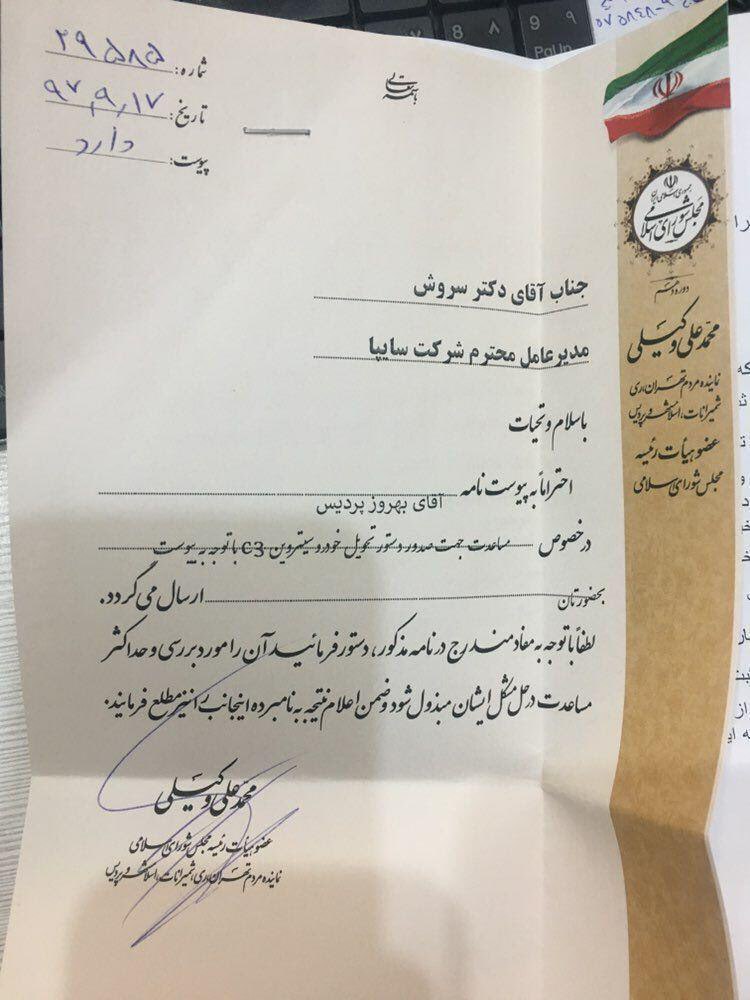 باسمه تعالی
شماره: ۲۹۵۸۵
تاریخ: ۹۷,۹,۱۷
پیوست: دارد
جمهوری اسلامی ایران
مجلس شورای اسلامی
دوره دهم
محمد علی وکیلی
نماینده مردم تهران، ری
شمیرانات، اسلامشهر و پردیس
عضو هیأت رئیسه
مجلس شورای اسلامی
جناب آقای دکتر سروش
مدیرعامل محترم شرکت سایپا
باسلام و تحیات
احتراماً به پیوست نامه آقای بهروز پردیس
درخصوص مساعدت جهت صدور دستور تحویل خودرو سیتروین C3 با توجه به پیوست
بحضورتان ارسال می گردد.
لطفاً با توجه به مفاد مندرج در نامه مذکور، دستور فرمائید آن را مورد بررسی و حداکثر
مساعدت در حل مشکل ایشان مبذول شود و ضمن اعلام نتیجه به نامبرده اینجانب را نیز مطلع فرمایند.
محمد علی وکیلی
عضو هیأت رئیسه مجلس شورای اسلامی
نماینده مردم تهران، ری، شمیرانات، اسلامشهر و پردیس
PgUp